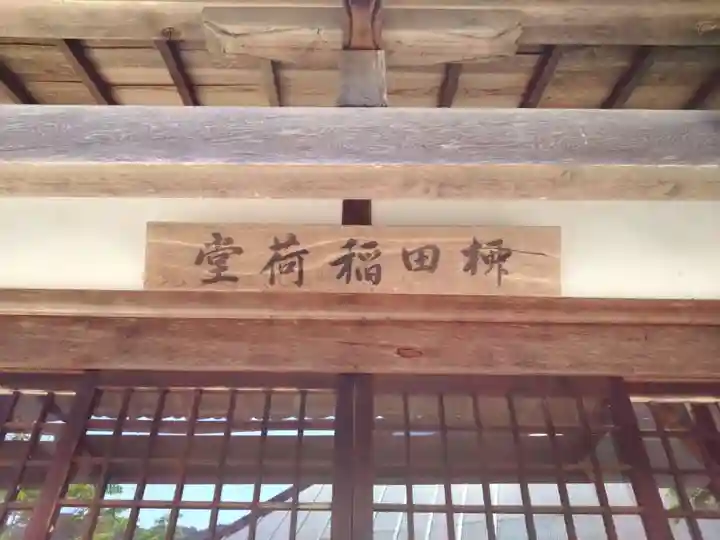 柳田稲荷堂